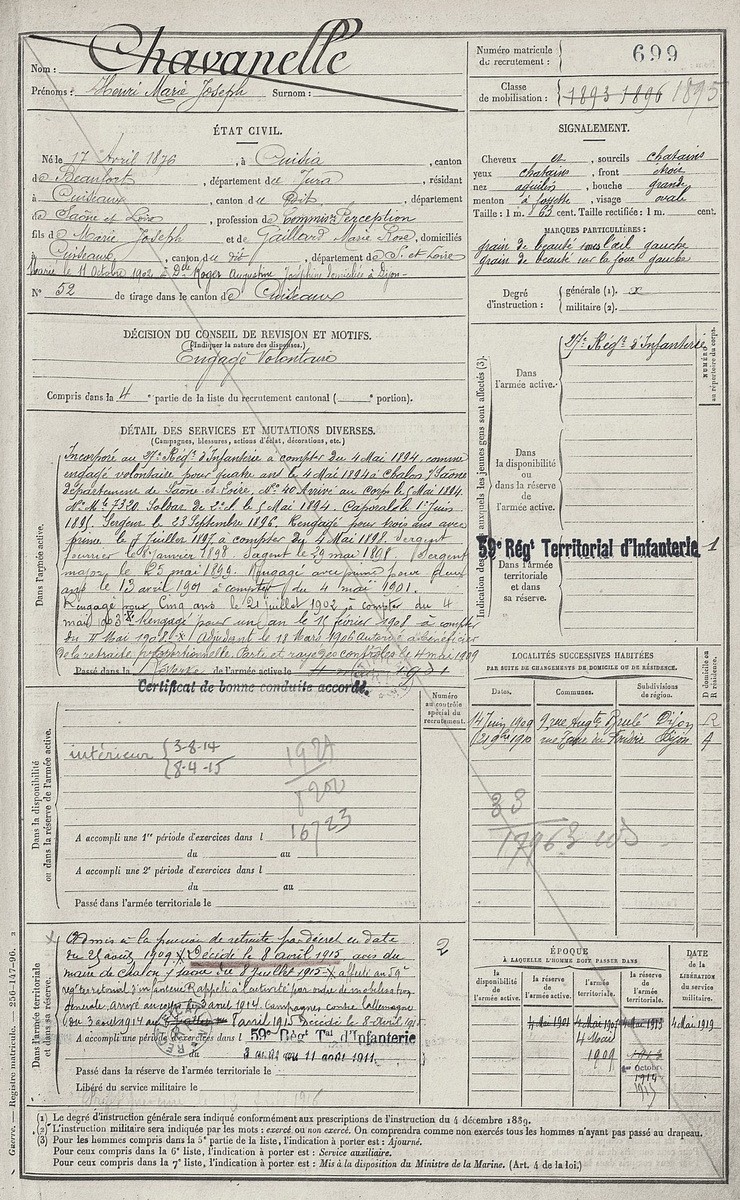 Nom : Chavanelle
Prénoms : Henri Marie Joseph Surnom :
Numéro matricule de recrutement : 699
Classe de mobilisation : 1893 1896 1895
ÉTAT CIVIL.
Né le 17 Avril 1876, à Cuisia, canton
de Beaufort, département du Jura, résidant
à Cuiseaux, canton du dit, département
de Saône et Loire, profession de Commis Perception
fils de Marie Joseph et de Gaillard Marie Rose, domiciliés
à Cuiseaux, canton du dit, département de S. et Loire
Marié le 11 Octobre 1902 à Dlle Roger Augustine Joséphine domiciliée à Dijon
N° 52 de tirage dans le canton de Cuiseaux
SIGNALEMENT.
Cheveux et, sourcils chatains
yeux chatains, front étroit
nez aquilin, bouche grande
menton à fossette, visage ovale
Taille : 1 m. 63 cent. Taille rectifiée : 1 m. cent.
MARQUES PARTICULIÈRES :
grain de beauté sous l'œil gauche
grain de beauté sur la joue gauche
Degré d'instruction : générale (1). x
militaire (2).
DÉCISION DU CONSEIL DE REVISION ET MOTIFS.
(Indiquer la nature des dispenses.)
Engagé Volontaire
Compris dans la 4e partie de la liste du recrutement cantonal ( e portion).
DÉTAIL DES SERVICES ET MUTATIONS DIVERSES.
(Campagnes, blessures, actions d'éclat, décorations, etc.)
Dans l'armée active.
Incorporé au 27e Régt d'Infanterie à compter du 4 Mai 1894, comme
engagé volontaire pour quatre ans le 4 Mai 1894 à Chalon s/ Saône
département de Saône et Loire, N° 40. Arrivé au corps le 5 Mai 1894.
N° Mle 7320. Soldat de 2e cl. le 5 Mai 1894. Caporal le 1er Juin
1895. Sergent le 23 Septembre 1896. Rengagé pour trois ans avec
prime le 7 Juillet 1897 à compter du 4 Mai 1898. Sergent
fourrier le janvier 1898. Sergent le 29 mai 1898. Sergent
major le 25 mai 1899. Rengagé avec prime pour deux
ans le 13 avril 1901 à compter du 4 mai 1901.
Rengagé pour Cinq ans le 21 juillet 1902 à compter du 4
mai 1903 X Rengagé pour un an le 15 février 1908 à compter
du 4 Mai 1908. X Adjudant le 18 Mars 1906 Autorisé à bénéficier
de la retraite proportionnelle. Parti et rayé des contrôles le 4 mai 1909
Passé dans la Réserve de l'armée active le
Certificat de bonne conduite accordé.
Indication des corps auxquels les jeunes gens sont affectés (3).
NUMÉRO au répertoire du corps.
Dans l'armée active.
27e Régt d'Infanterie
Dans la disponibilité ou dans la réserve de l'armée active.
59e Régt Territorial d'Infanterie 1
Dans l'armée territoriale et dans sa réserve.
LOCALITÉS SUCCESSIVES HABITÉES
PAR SUITE DE CHANGEMENTS DE DOMICILE OU DE RÉSIDENCE.
Dates. Communes. Subdivisions de région. D domicile ou R résidence.
14 Juin 1909 9 rue Augte Brulé Dijon R
1910 Dijon
33
17963
Numéro au contrôle spécial du recrutement.
Dans la disponibilité ou dans la réserve de l'armée active.
intérieur { 3-8-14
8-4-15
16723
A accompli une 1re période d'exercices dans l
du au
A accompli une 2e période d'exercices dans l
du au
Passé dans l'armée territoriale le
Dans l'armée territoriale et dans sa réserve.
Admis à la pension de retraite par décret en date
du 25 août 1909. X Décédé le 8 avril 1915 avis du
maire de Chalon s/ Saône du 8 juillet 1915 - X affecté au 59e
régt territorial d'infanterie Rappelé à l'activité par ordre de mobilisation
générale, arrivé au corps le 3 août 1914. Campagnes contre l'Allemagne
du 3 août 1914 au 8 avril 1915 Décédé le 8 avril 1915.
2
A accompli une période d'exercices dans l 59e Régt Tal d'Infanterie
du 3 au 11 août 1911.
Passé dans la réserve de l'armée territoriale le
Libéré du service militaire le
ÉPOQUE
À LAQUELLE L'HOMME DOIT PASSER DANS
DATE de la LIBÉRATION du service militaire.
la disponibilité de l'armée active. la réserve de l'armée active. l'armée territoriale. la réserve de l'armée territoriale.
4 Mai 1901 4 Mai 1905 4 Mai 1913 4 Mai 1919
4 Mai 1909
1er Octobre 1914
1915
(1) Le degré d'instruction générale sera indiqué conformément aux prescriptions de l'instruction du 4 décembre 1889.
(2) L'instruction militaire sera indiquée par les mots : exercé ou non exercé. On comprendra comme non exercés tous les hommes n'ayant pas passé au drapeau.
(3) Pour les hommes compris dans la 5e partie de la liste, l'indication à porter est : Ajourné.
Pour ceux compris dans la 6e liste, l'indication à porter est : Service auxiliaire.
Pour ceux compris dans la 7e liste, l'indication à porter est : Mis à la disposition du Ministre de la Marine. (Art. 4 de la loi.)
Guerre. — Registre matricule. — 256-147-96.